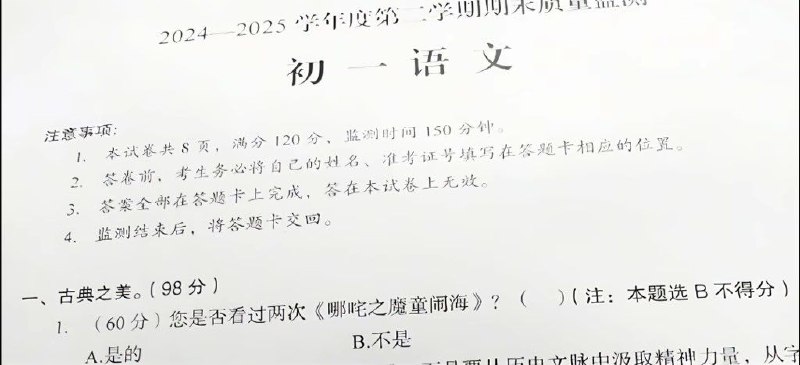 2024—2025 学年度第二学期期末质量监测
初 一 语 文
注意事项:
1. 本试卷共 8 页，满分 120 分，监测时间 150 分钟。
2. 答卷前，考生务必将自己的姓名、准考证号填写在答题卡相应的位置。
3. 答案全部在答题卡上完成，答在本试卷上无效。
4. 监测结束后，将答题卡交回。
一、古典之美。(98 分)
1. (60 分) 您是否看过两次《哪咤之魔童闹海》? ( )(注: 本题选 B 不得分)
A.是的 B.不是
要从历史文脉中汲取精神力量，从字